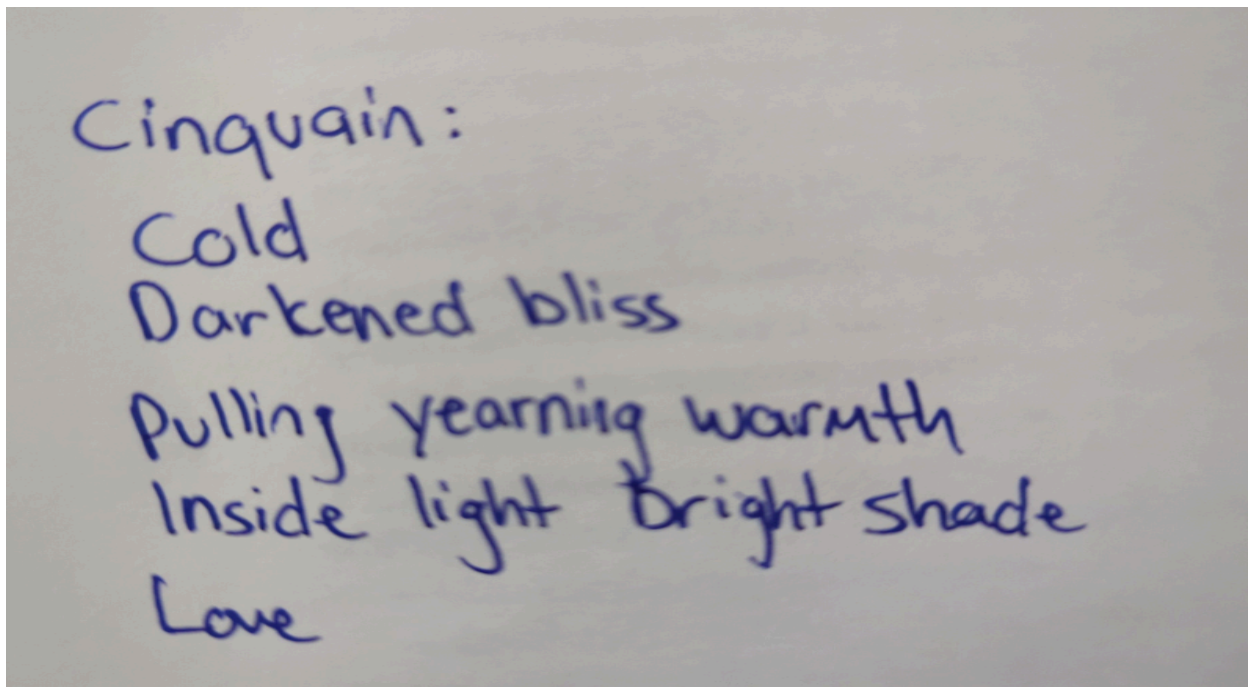 Cinquain:
Cold
Darkened bliss
Pulling yearning warmth
Inside light bright shade
Love